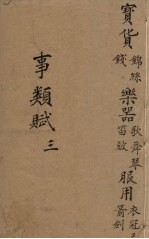 寶貨 錦絲
錢
樂器 歌舞琴
笛鼓
服用 衣冠
箭劍
事類賦 三